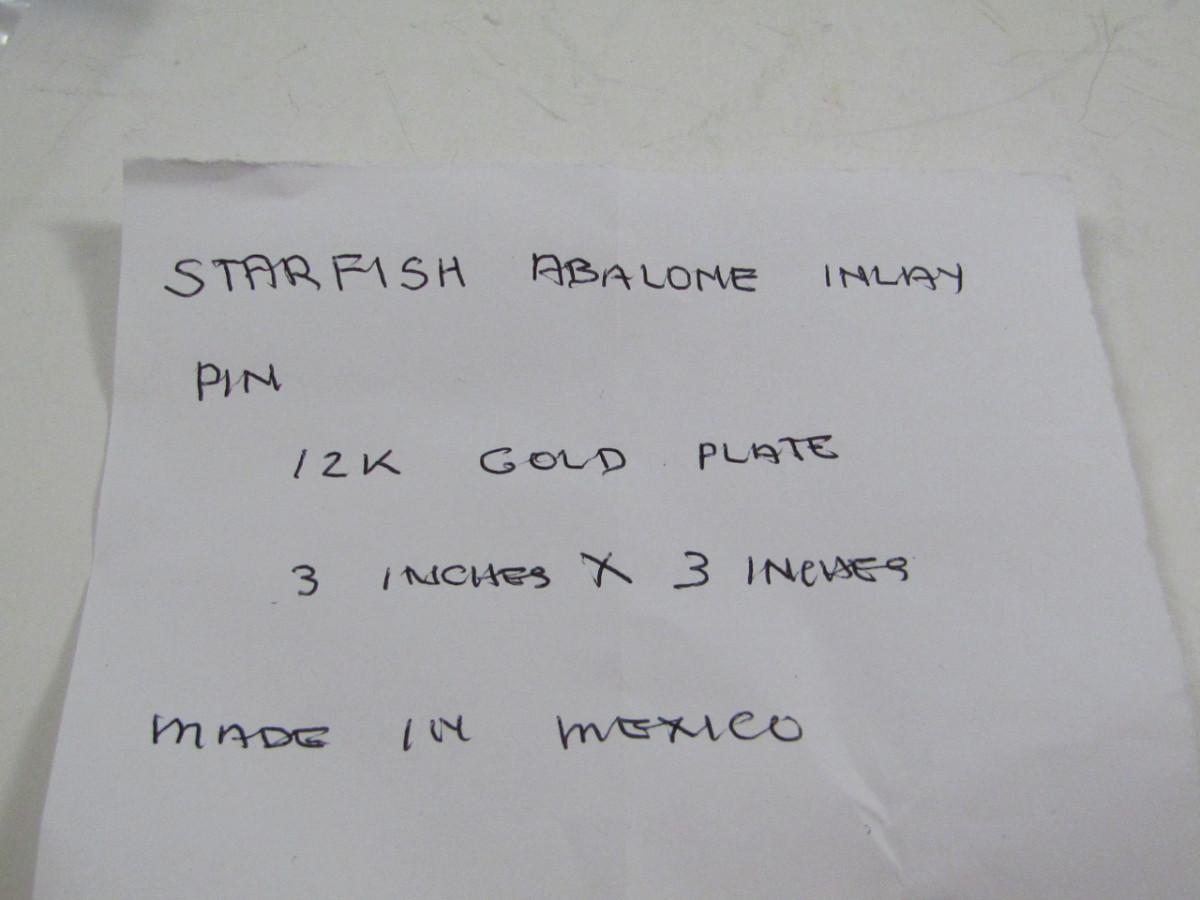 STARFISH ABALONE INLAY
PIN
12K GOLD PLATE
3 INCHES X 3 INCHES
MADE IN MEXICO